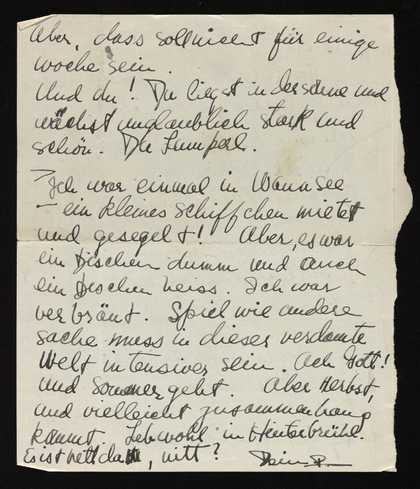 Aber, dass soll nicht für einige
woche sein.
Und du! Du liegst in der sonne und
wächst unglaublich stark und
schön. Du Lumperl.
Ich war einmal in Wannsee
– ein kleines Schiffchen mietet
und gesegelt! Aber, es war
ein bischen dumm und auch
ein bischen heiss. Ich war
verbränt. Spiel wie andere
sache muss in dieser verdamte
Welt intensiver sein. Ach Gott!
und Sommer geht. Aber Herbst,
und vielleicht zusammenhang
kommt. Leb wohl in Hinterbrühl.
Es ist nett da, nitt?